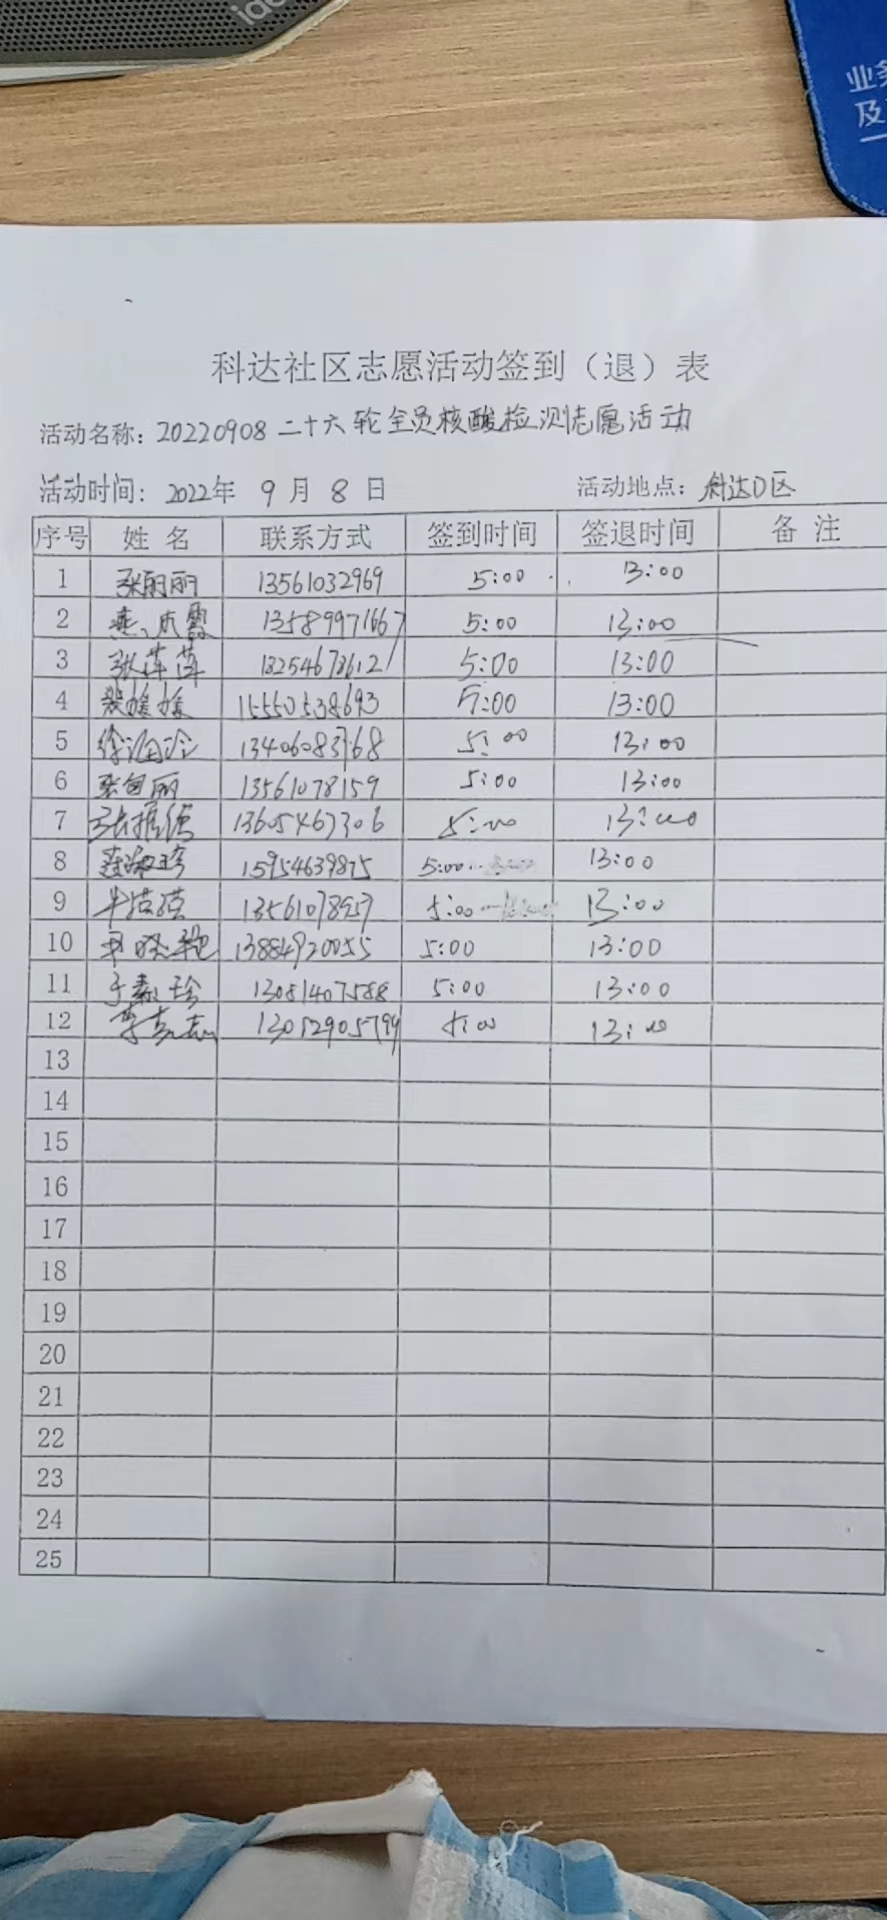 业务
及
科达社区志愿活动签到（退）表
活动名称: 20220908 二十六轮全员核酸检测志愿活动
活动时间: 2022年 9 月 8 日 活动地点: 科达D区
序号 姓名 联系方式 签到时间 签退时间 备注
1 张丽丽 13561032969 5:00 13:00
2 13589971667 5:00 13:00
3 张萍萍 13254673612 5:00 13:00
4 裴媛媛 15550538693 5:00 13:00
5 13406083768 5:00 13:00
6 13561078159 5:00 13:00
7 13605467306 5:00 13:00
8 15954639875 5:00 13:00
9 13561078957 5:00 13:00
10 13884920055 5:00 13:00
11 于素珍 13081407588 5:00 13:00
12 5:00 13:00
13
14
15
16
17
18
19
20
21
22
23
24
25